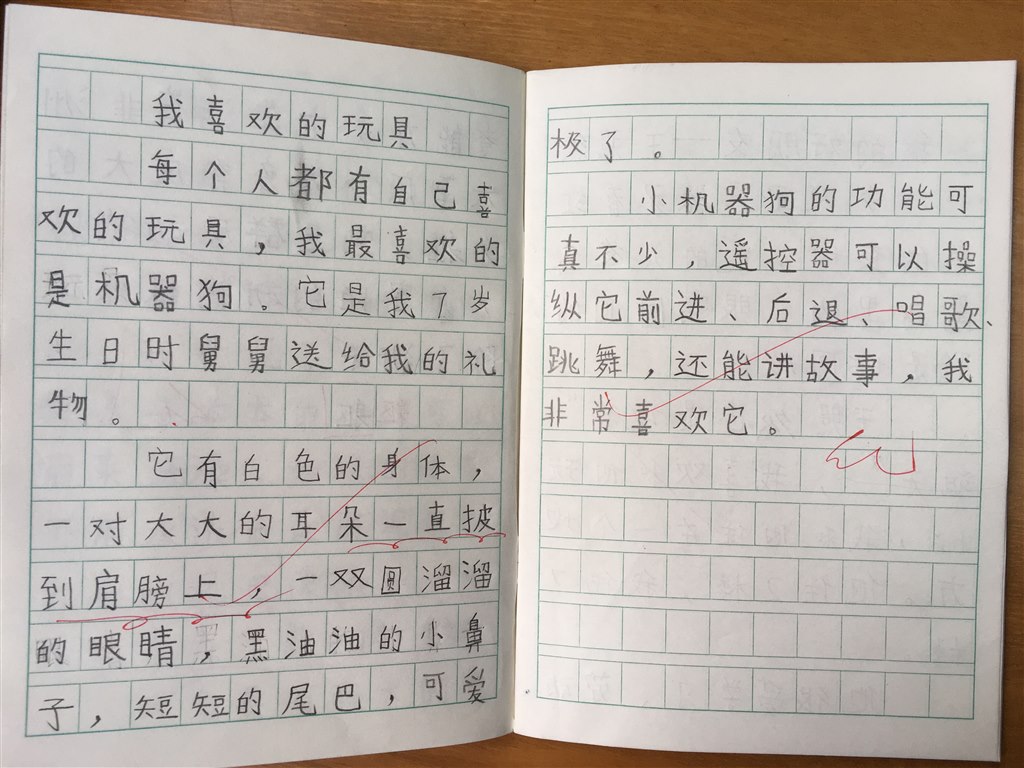 我喜欢的玩具
每个人都有自己喜
欢的玩具，我最喜欢的
是机器狗。它是我7岁
生日时舅舅送给我的礼
物。
它有白色的身体，
一对大大的耳朵一直披
到肩膀上，一双圆溜溜
的眼睛，黑油油的小鼻
子，短短的尾巴，可爱
极了。
小机器狗的功能可
真不少，遥控器可以操
纵它前进、后退、唱歌、
跳舞，还能讲故事，我
非常喜欢它。